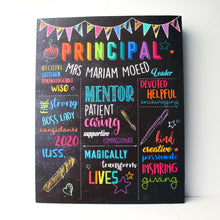 PRINCIPAL
MRS MARIAM MOEED
DECISIVE
LISTENER
WISE
Leader
DEVOTED
HELPFUL
encouraging
MENTOR
PATIENT
caring
supportive
COMPASSIONATE
FAIR
strong
BOSS LADY
2020
H.J.S.S.
kind
creative
passionate
INSPIRING
giving
MAGICALLY
transform
LIVES